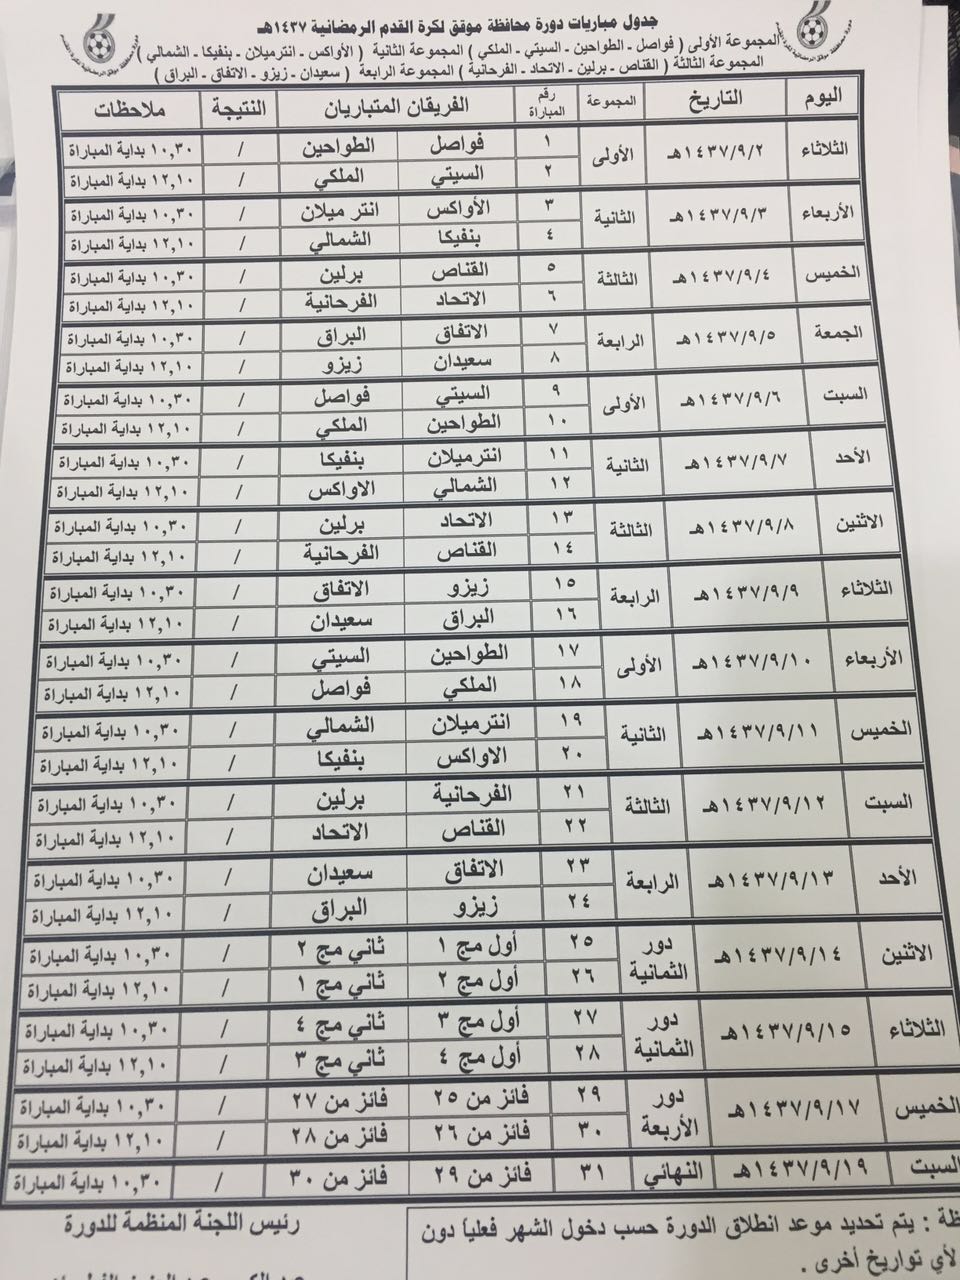 جدول مباريات دورة محافظة موقق لكرة القدم الرمضانية ١٤٣٧هـ
المجموعة الأولى ( فواصل - الطواحين - السيتي - الملكي ) المجموعة الثانية ( الأواكس - انترميلان - بنفيكا - الشمالي )
المجموعة الثالثة ( القناص - برلين - الاتحاد - الفرحانية ) المجموعة الرابعة ( سعيدان - زيزو - الاتفاق - البراق )
اليوم التاريخ المجموعة رقم المباراة الفريقان المتباريان النتيجة ملاحظات
الثلاثاء ١٤٣٧/٩/٢هـ الأولى ١ فواصل الطواحين / ١٠,٣٠ بداية المباراة
٢ السيتي الملكي / ١٢,١٠ بداية المباراة
الأربعاء ١٤٣٧/٩/٣هـ الثانية ٣ الأواكس انتر ميلان / ١٠,٣٠ بداية المباراة
٤ بنفيكا الشمالي / ١٢,١٠ بداية المباراة
الخميس ١٤٣٧/٩/٤هـ الثالثة ٥ القناص برلين / ١٠,٣٠ بداية المباراة
٦ الاتحاد الفرحانية / ١٢,١٠ بداية المباراة
الجمعة ١٤٣٧/٩/٥هـ الرابعة ٧ الاتفاق البراق / ١٠,٣٠ بداية المباراة
٨ سعيدان زيزو / ١٢,١٠ بداية المباراة
السبت ١٤٣٧/٩/٦هـ الأولى ٩ السيتي فواصل / ١٠,٣٠ بداية المباراة
١٠ الطواحين الملكي / ١٢,١٠ بداية المباراة
الأحد ١٤٣٧/٩/٧هـ الثانية ١١ انترميلان بنفيكا / ١٠,٣٠ بداية المباراة
١٢ الشمالي الاواكس / ١٢,١٠ بداية المباراة
الاثنين ١٤٣٧/٩/٨هـ الثالثة ١٣ الاتحاد برلين / ١٠,٣٠ بداية المباراة
١٤ القناص الفرحانية / ١٢,١٠ بداية المباراة
الثلاثاء ١٤٣٧/٩/٩هـ الرابعة ١٥ زيزو الاتفاق / ١٠,٣٠ بداية المباراة
١٦ البراق سعيدان / ١٢,١٠ بداية المباراة
الأربعاء ١٤٣٧/٩/١٠هـ الأولى ١٧ الطواحين السيتي / ١٠,٣٠ بداية المباراة
١٨ الملكي فواصل / ١٢,١٠ بداية المباراة
الخميس ١٤٣٧/٩/١١هـ الثانية ١٩ انترميلان الشمالي / ١٠,٣٠ بداية المباراة
٢٠ الاواكس بنفيكا / ١٢,١٠ بداية المباراة
السبت ١٤٣٧/٩/١٢هـ الثالثة ٢١ الفرحانية برلين / ١٠,٣٠ بداية المباراة
٢٢ القناص الاتحاد / ١٢,١٠ بداية المباراة
الأحد ١٤٣٧/٩/١٣هـ الرابعة ٢٣ الاتفاق سعيدان / ١٠,٣٠ بداية المباراة
٢٤ زيزو البراق / ١٢,١٠ بداية المباراة
الاثنين ١٤٣٧/٩/١٤هـ دور الثمانية ٢٥ أول مج ١ ثاني مج ٢ / ١٠,٣٠ بداية المباراة
٢٦ أول مج ٢ ثاني مج ١ / ١٢,١٠ بداية المباراة
الثلاثاء ١٤٣٧/٩/١٥هـ دور الثمانية ٢٧ أول مج ٣ ثاني مج ٤ / ١٠,٣٠ بداية المباراة
٢٨ أول مج ٤ ثاني مج ٣ / ١٢,١٠ بداية المباراة
الخميس ١٤٣٧/٩/١٧هـ دور الأربعة ٢٩ فائز من ٢٥ فائز من ٢٧ / ١٠,٣٠ بداية المباراة
٣٠ فائز من ٢٦ فائز من ٢٨ / ١٢,١٠ بداية المباراة
السبت ١٤٣٧/٩/١٩هـ النهائي ٣١ فائز من ٢٩ فائز من ٣٠ / ١٠,٣٠ بداية المباراة
ظة : يتم تحديد موعد انطلاق الدورة حسب دخول الشهر فعلياً دون
لأي تواريخ أخرى .
رئيس اللجنة المنظمة للدورة